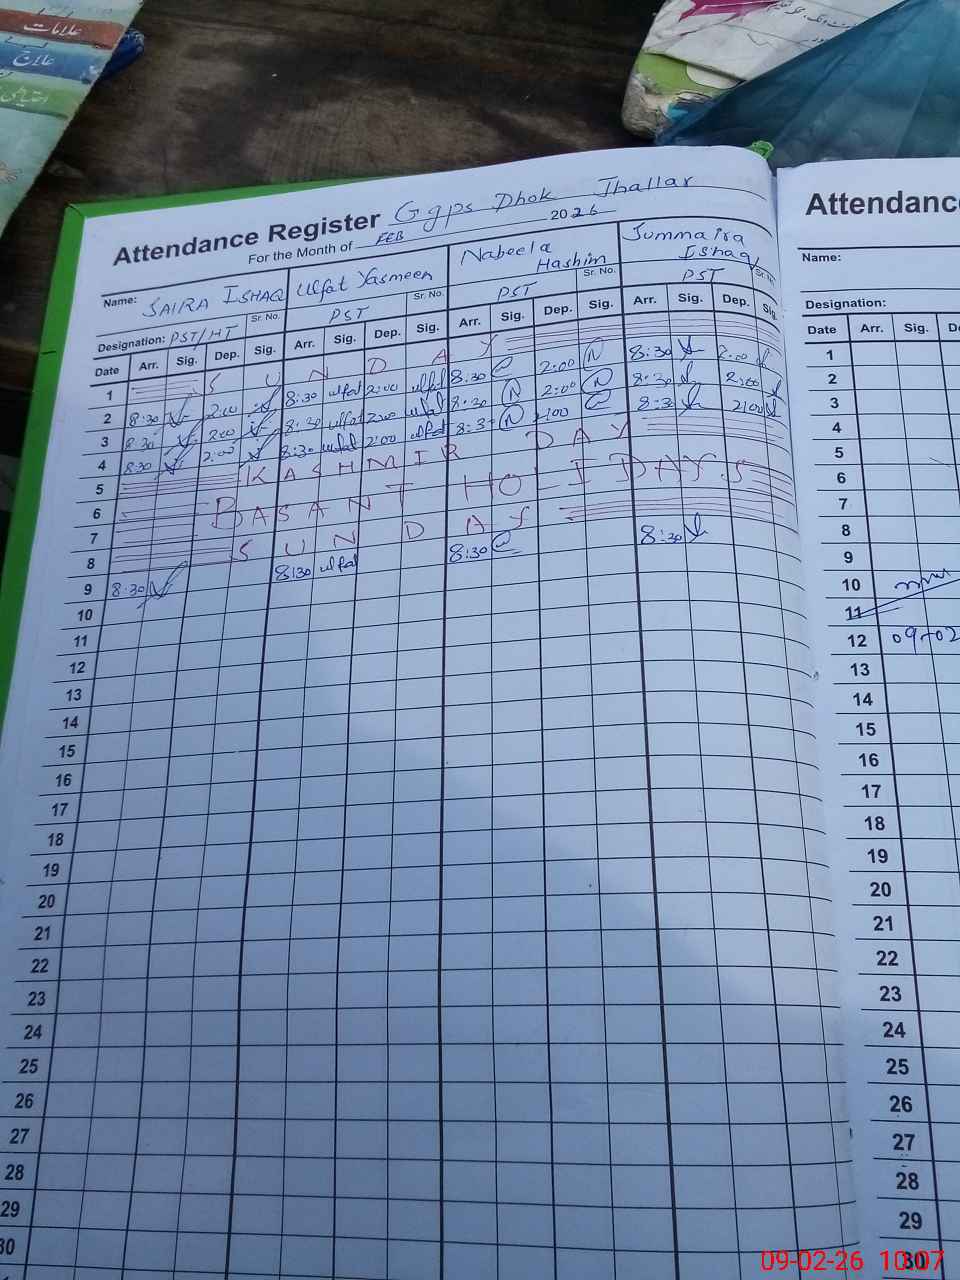 علامات
علاج
Attendance Register Ggps Dhok Jhallar
For the Month of FEB 2026
Name: SAIRA ISHAQ Ulfat Yasmeen Nabeela Hashim Summaira Ishaq
Sr. No. Sr. No. Sr. No. Sr. No.
Designation: PST/HT PST PST PST
Date Arr. Sig. Dep. Sig. Arr. Sig. Dep. Sig. Arr. Sig. Dep. Sig. Arr. Sig. Dep. Sig.
1 SUNDAY
2 8:30 2:00 8:30 ulfat 2:00 ulfat 8:30 2:00 8:30 2:00
3 8:30 2:00 8:30 ulfat 2:00 ulfat 8:30 2:00 8:30 2:00
4 8:30 2:00 8:30 ulfat 2:00 ulfat 8:30 2:00 8:30 2:00
5 KASHMIR DAY
6 BASANT HOLIDAYS
7
8 SUNDAY
9 8:30 8:30 ulfat 8:30 8:30
10
11
12
13
14
15
16
17
18
19
20
21
22
23
24
25
26
27
28
29
30
Attendance
Name:
Designation:
Date Arr. Sig.
1
2
3
4
5
6
7
8
9
10
11
12 09-02
13
14
15
16
17
18
19
20
21
22
23
24
25
26
27
28
29
30
09-02-26 10:07